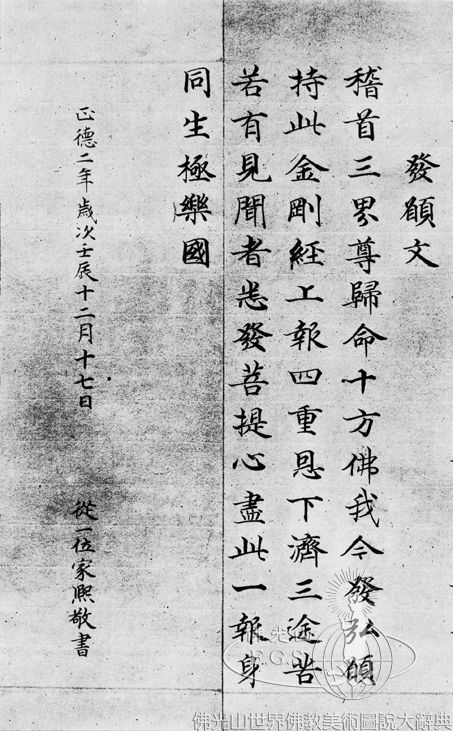 發願文
稽首三界尊歸命十方佛我今發弘願
持此金剛經上報四重恩下濟三途苦
若有見聞者悉發菩提心盡此一報身
同生極樂國
正德二年歲次壬辰十二月十七日 從一位家熈敬書
佛光山
F.G.S.
佛光山世界佛教美術圖說大辭典